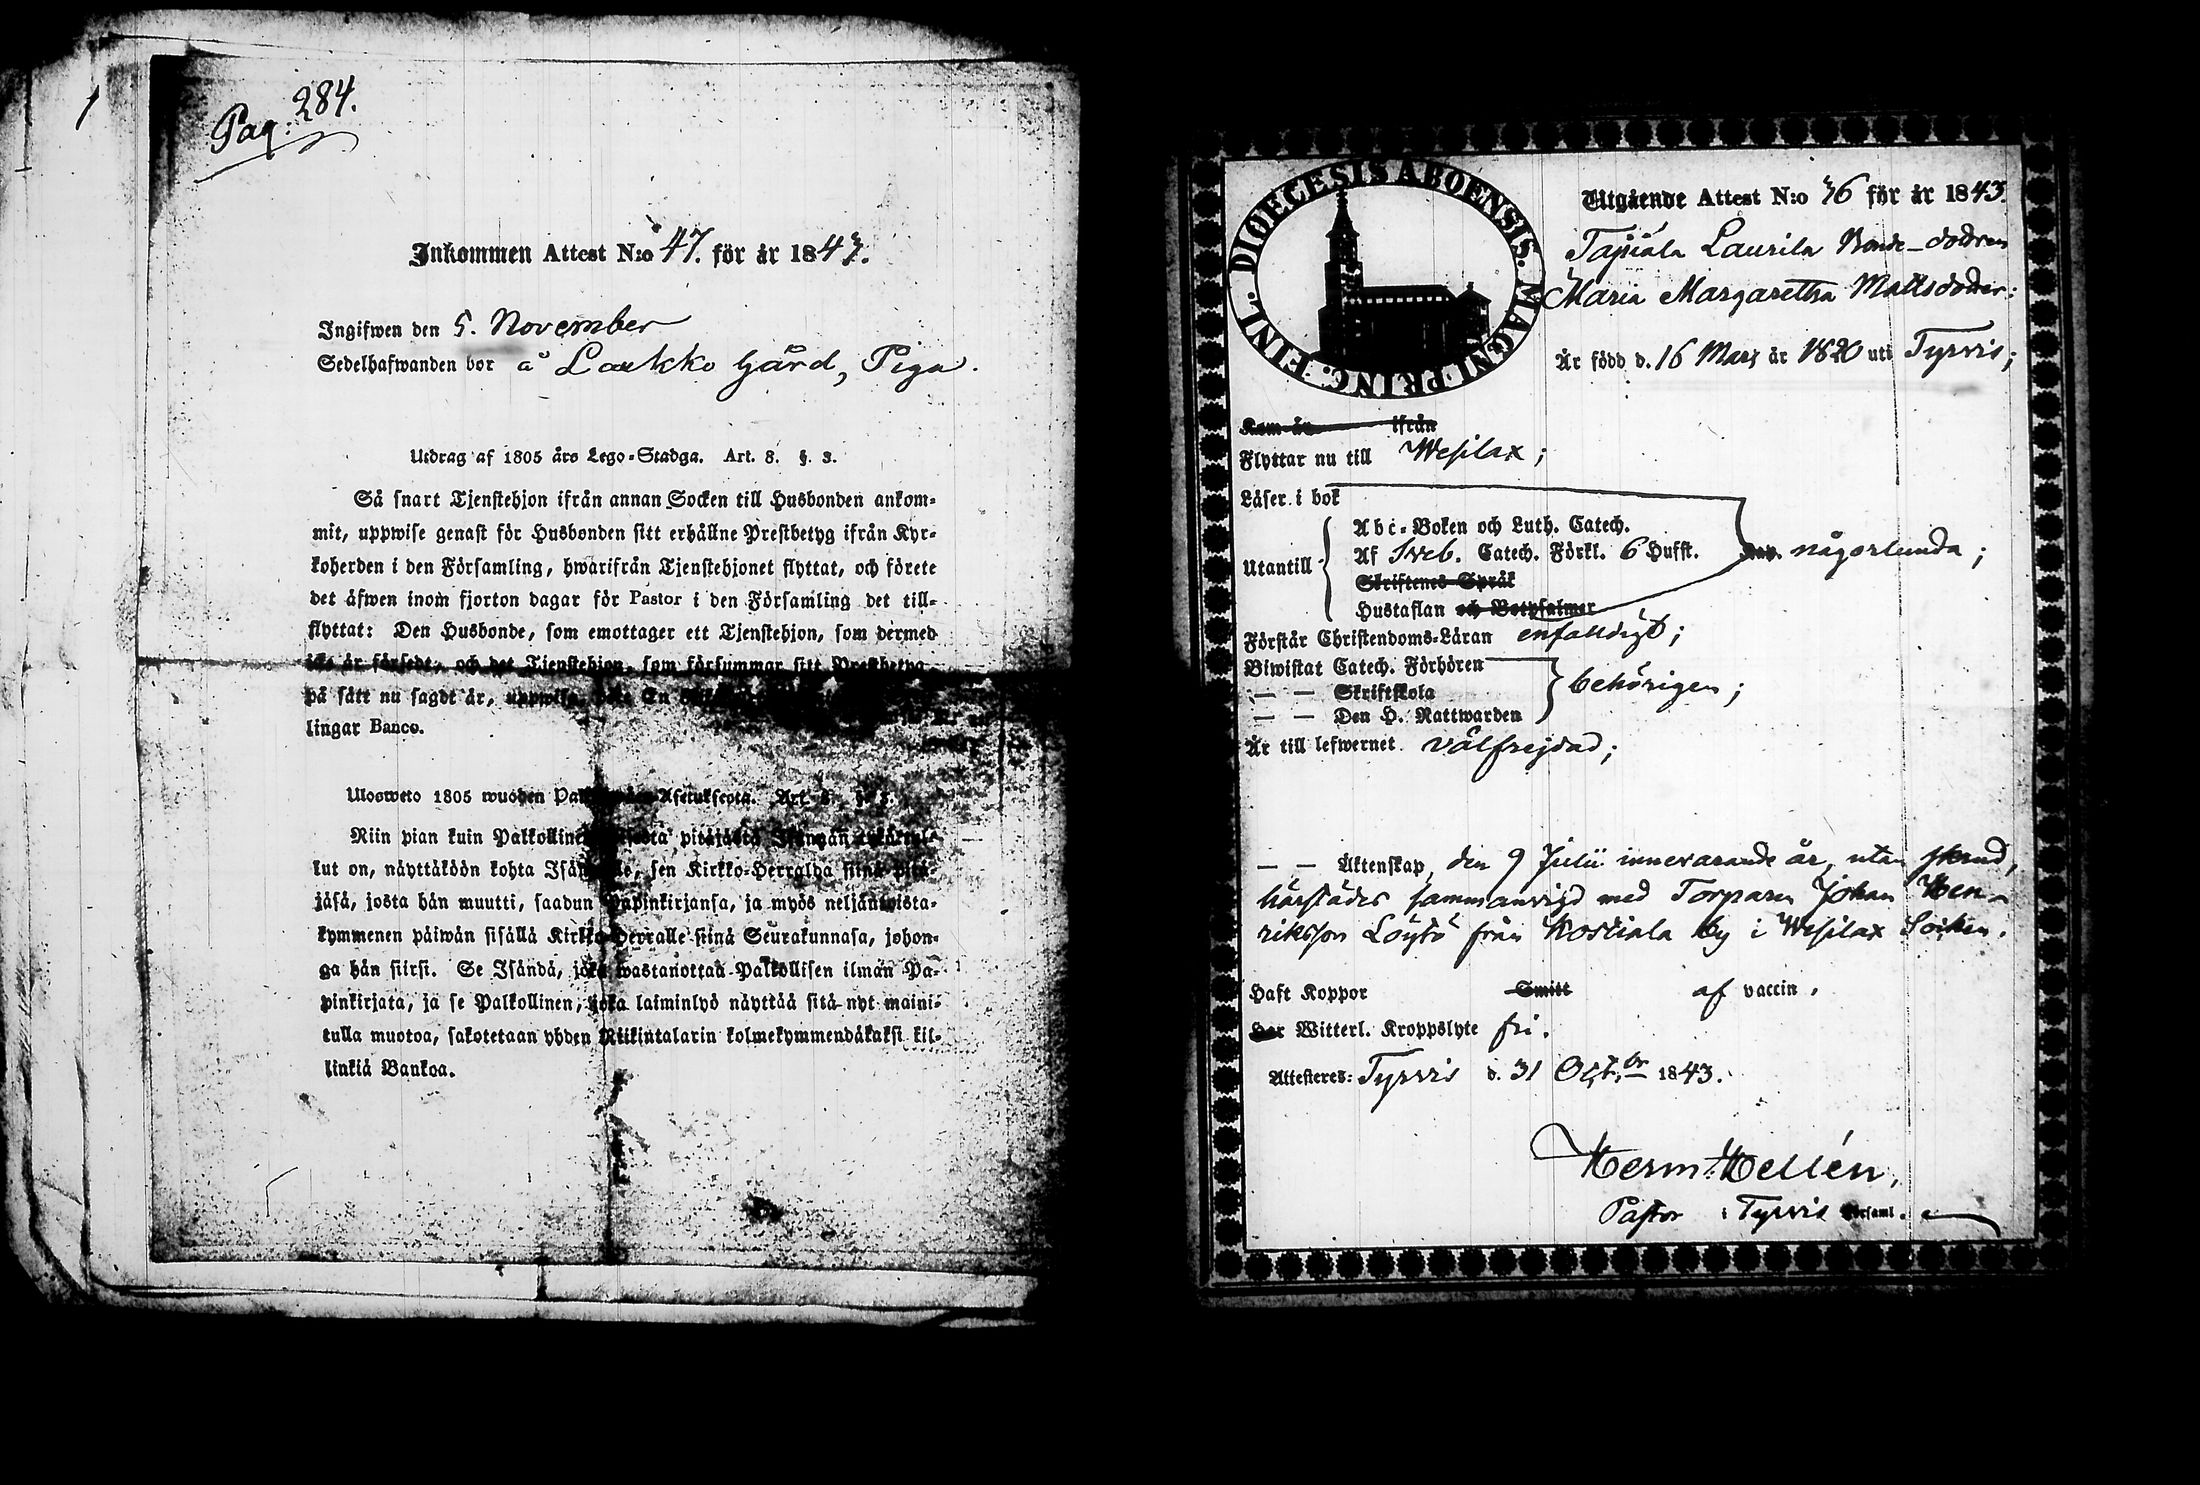 Pag: 284.
Inkommen Attest N:o 47. för år 1843.
Ingifwen den 5. November
Sedelhafwanden bor å Laukko Gård, Piga.
Utdrag af 1805 års Lego-Stadga. Art. 8. §. 3.
Så snart Tjenstehjon ifrån annan Socken till Husbonden ankom-
mit, uppwise genast för Husbonden sitt erhållne Prestbetyg ifrån Kyr-
koherden i den Församling, hwarifrån Tjenstehjonet flyttat, och förete
det äfwen inom fjorton dagar för Pastor i den Församling det till-
flyttat: Den Husbonde, som emottager ett Tjenstehjon, som dermed
icke är försedt, och det Tjenstehjon, som försummar sitt Prestbetyg
på sätt nu sagdt är, uppwisa, En
lingar Banco.
Ulosweto 1805 wuoden Asetuksesta. Art. 8. §. 3.
Niin pian kuin pitäjästä Isännän
lut on, näyttäköön kohta sen Kirkko-Herralda siinä
jäsä, josta hän muutti, saadun Papinkirjansa, ja myös neljäntoista-
kymmenen päiwän sisällä Kirkko-Herralle siinä Seurakunnasa, johon-
ga hän siirsi. Se Isändä, joka wastanottaa Palkollisen ilman Pa-
pinkirjata, ja se Palkollinen, joka laiminlyö näyttää sitä nyt maini-
tulla muotoa, sakotetaan yhden Riikintalarin kolmekymmendäkaksi kil-
linkiä Bankoa.
DIOECESIS ABOENSIS. MAGNI PRINC. FINL.
Utgående Attest N:o 76 för år 1843.
Tajpiala Laurila Bonde-dottren
Maria Margaretha Mattsdotter:
Är född d. 16 Mars år 1820 uti Tyrvis;
Kom år ifrån
Flyttar nu till Wesilax;
Läser i bok
Utantill
Abc-Boken och Luth. Catech.
Af Sveb. Catech. Förkl. 6 Hufst. någorlunda;
Skriftenes Språk
Hustaflan och Botpsalmer
Förstår Christendoms-Läran enfaldigt;
Biwistat Catech. Förhören
— — Skriftskola behörigen;
— — Den H. Nattwarden
Är till lefwernet välfrejdad;
— — Äktenskap, den 9 Julii innevarande år, utan
härstädes sammanvigd med Torparen Johan Hen-
riksson Löytö från Kostiala by i Wesilax Socken.
Haft Koppor Smitt af vaccin.
Har Witterl. Kroppslyte fri.
Attesteres: Tyrvis d. 31 Oct:br 1843.
Herm: Hellén,
Pastor i Tyrvis Församl.